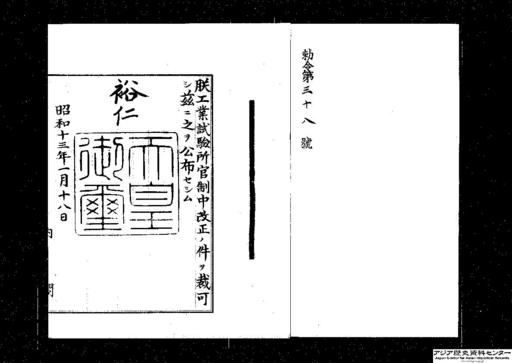 勅令第三十八號
朕工業試驗所官制中改正ノ件ヲ裁可
シ茲ニ之ヲ公布セシム
裕仁
天皇御璽
昭和十三年一月十八日
内閣
アジア歴史資料センター
Japan Center for Asian Historical Records